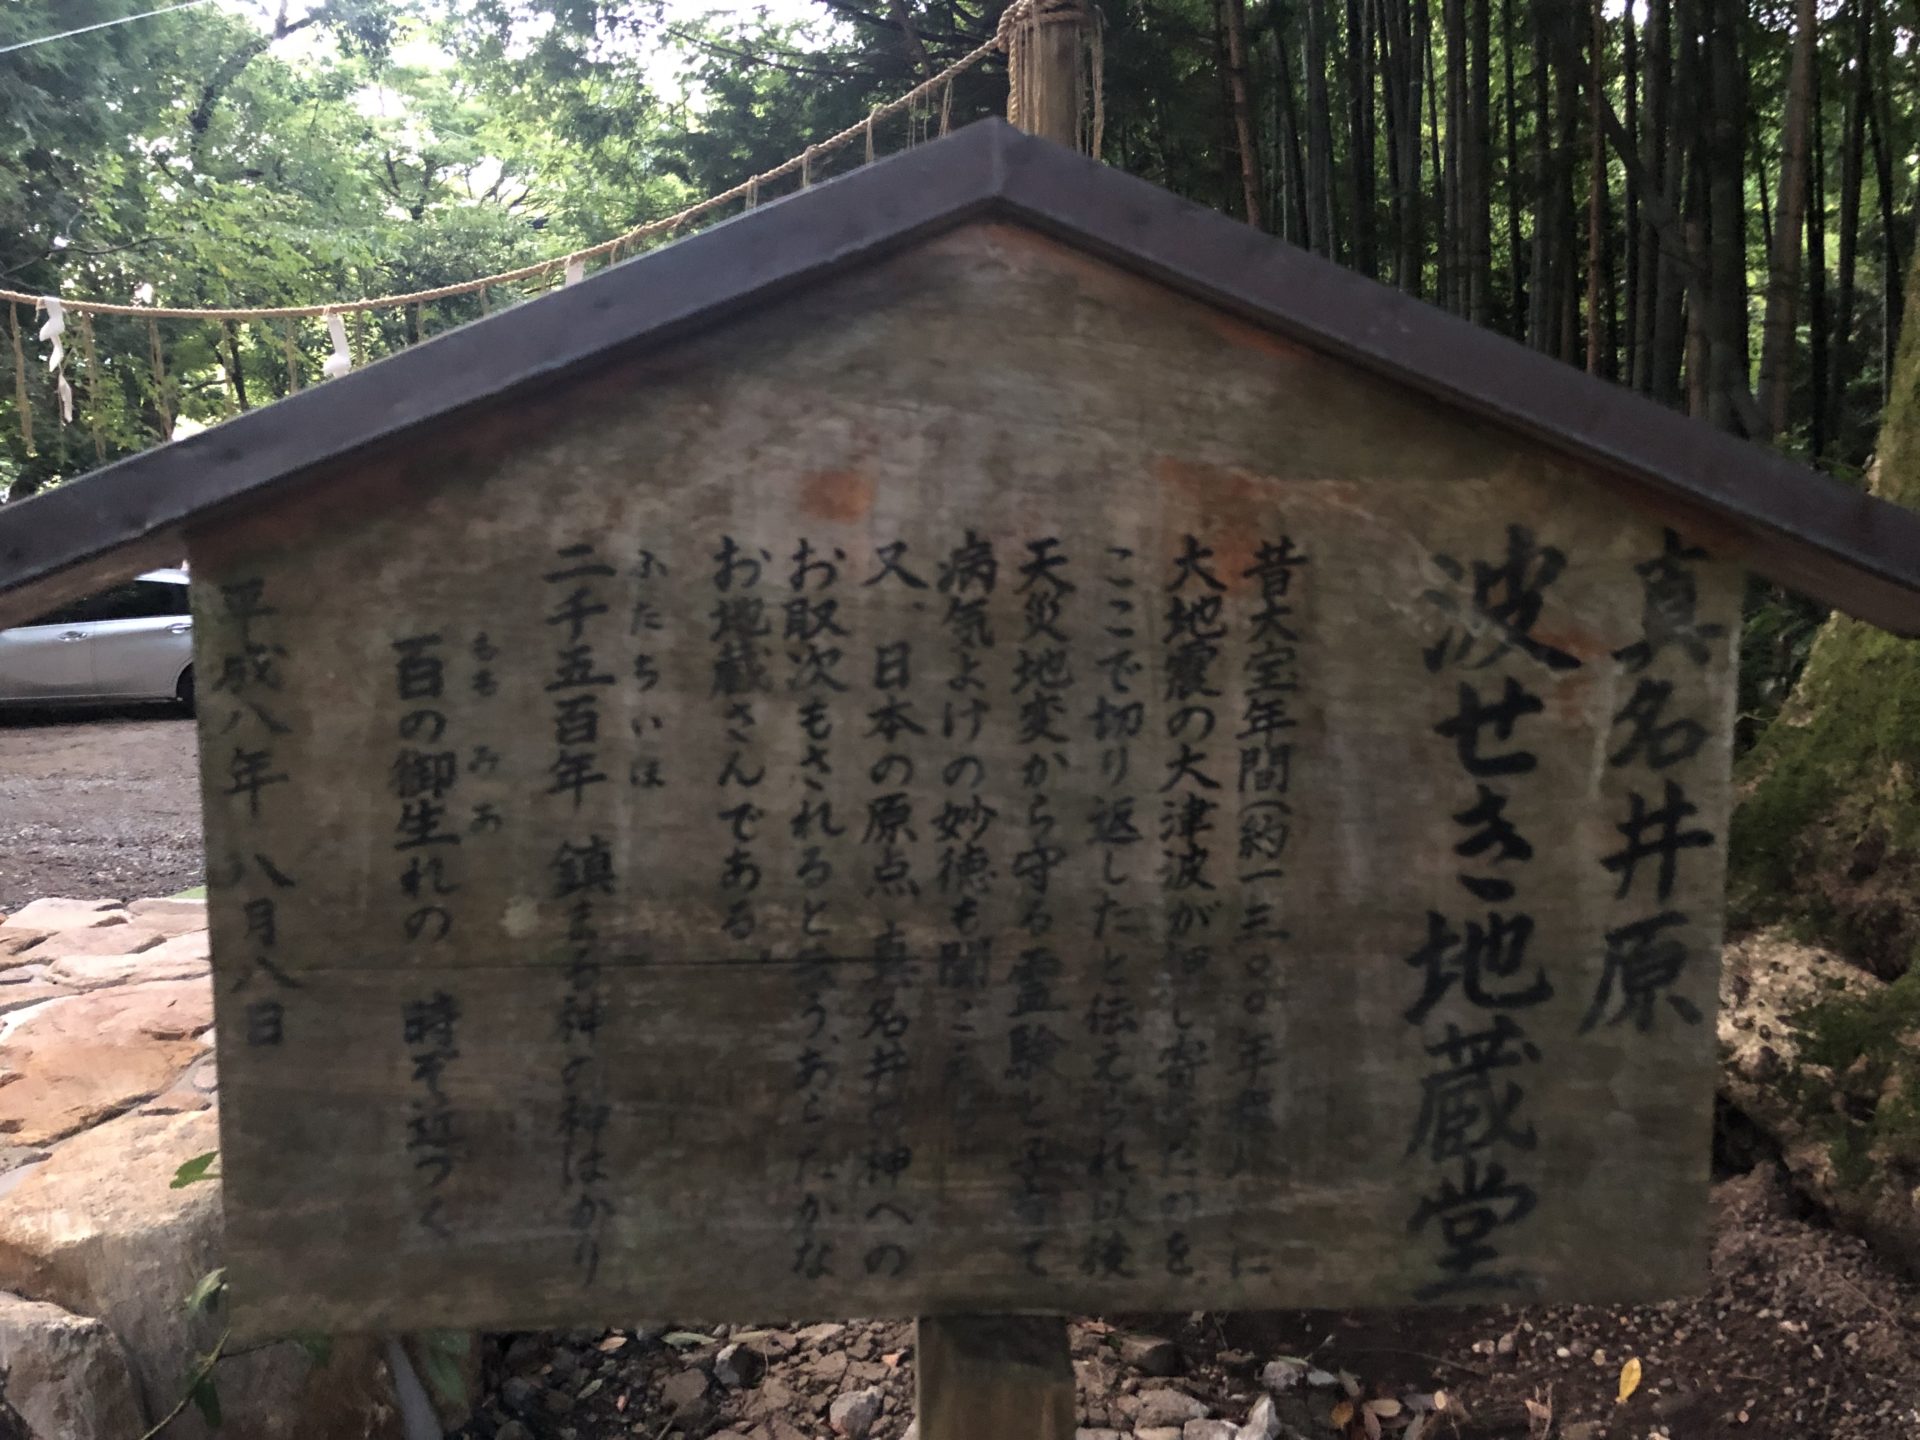 真名井原
波せき地蔵堂
昔大宝年間(約一三〇〇年
に
大地震の大津波が押し寄せたのを
ここで切り返したと伝えられ以後
天災地変から守る霊験と子育て
病気よけの妙徳も聞こえ
又、日本の原点 真名井の神への
お取次もされると云う、あらたかな
お地蔵さんである
ふたちいほ
二千五百年 鎮まる神の神はかり
もも みあ
百の御生れの 時ぞ近づく
平成八年 八月八日